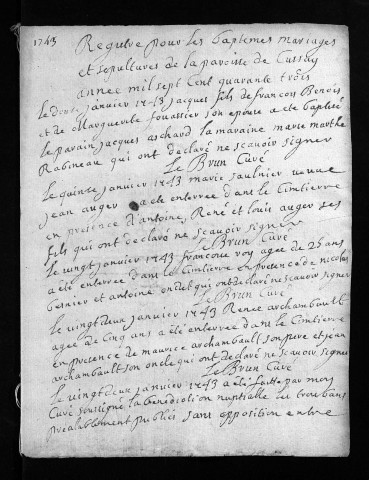 1743
Registre pour les baptemes mariages
et sepultures de la paroisse de Cussay
annee mil sept Cent quarante trois
Le douse janvier 1743 jacques fils de francois Benois
et de Marguerite fouassier son epouse a ete baptisé
le parain jacques aschard la maraine marie marthe
Rabineau qui ont declaré ne scavoir signer
Le Brun Curé
Le quinse janvier 1743 marie saulnier veuve
jean auger a ete enterree dans le Cimetierre
en presence d'antoine, René et louis auger ses
fils qui ont declaré ne scavoir signer
Le Brun Curé
Le vingt janvier 1743 francoise voy agee de 25 ans
a été enterree dans le Cimetierre en presence de nicolas
bernier et antoine qui ont declaré ne scavoir signer
Le Brun Curé
Le vingt deux janvier 1743 Renee archambault
agee de Cinq ans a été enterree dans le Cimetierre
en presence de maurice archambault son pere et jean
archambault son oncle qui ont declaré ne scavoir signer
Le Brun Curé
Le vingt deux janvier 1743 a été faitte par moy
Curé soussigné la benediction nuptialle les trois bans
prealablement publiés sans opposition entre